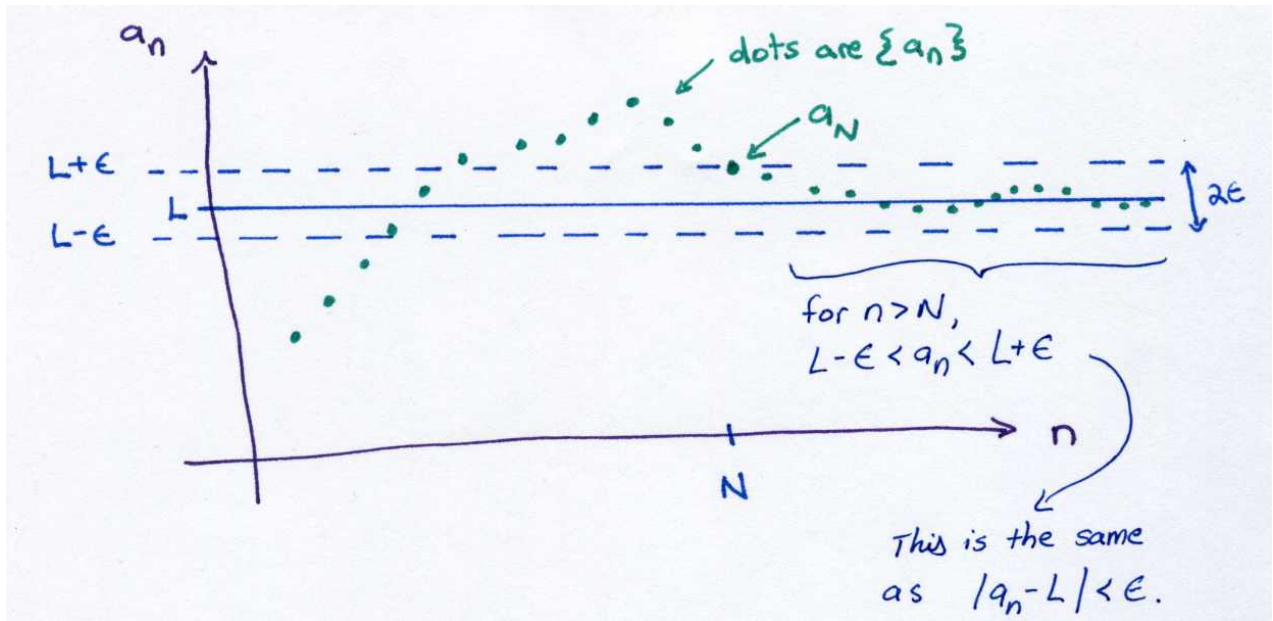 aₙ
dots are {aₙ}
a_N
L+ϵ
L
L-ϵ
2ϵ
for n>N,
L-ϵ<aₙ<L+ϵ
n
N
This is the same
as |aₙ-L|<ϵ.